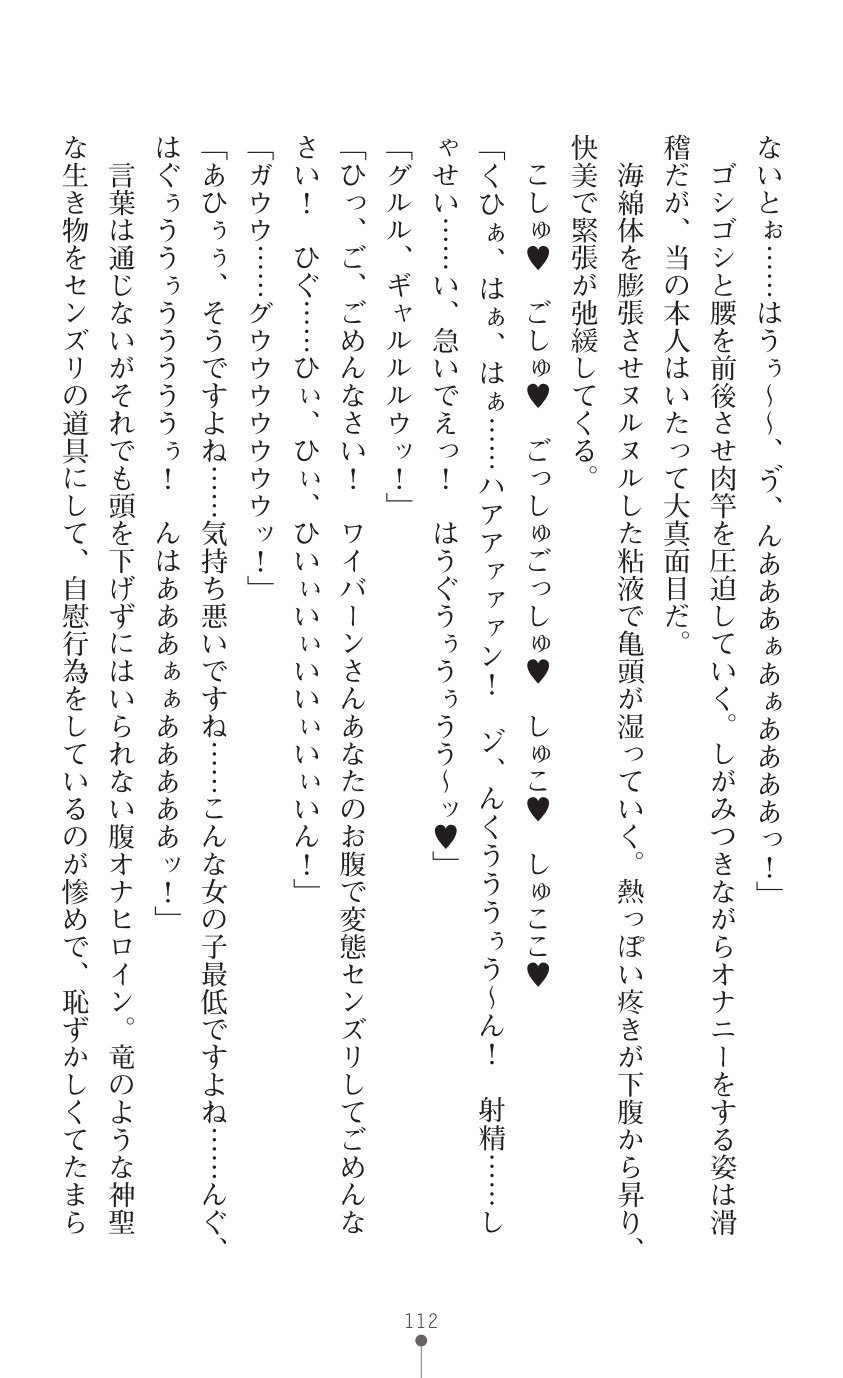 ないとぉ……はうぅ～～、ゔ、んあああぁあぁああああっ！」
　ゴシゴシと腰を前後させ肉竿を圧迫していく。しがみつきながらオナニーをする姿は滑
稽だが、当の本人はいたって大真面目だ。
　海綿体を膨張させヌルヌルした粘液で亀頭が湿っていく。熱っぽい疼きが下腹から昇り、
快美で緊張が弛緩してくる。
　こしゅ♥　ごしゅ♥　ごっしゅごっしゅ♥　しゅこ♥　しゅここ♥
「くひぁ、はぁ、はぁ……ハアアァァァン！　ゾ、んくうううぅう～ん！　射精……し
ゃせい……い、急いでえっ！　はうぐうぅうぅうう～ッ♥」
「グルル、ギャルルルウッ！」
「ひっ、ご、ごめんなさい！　ワイバーンさんあなたのお腹で変態センズリしてごめんな
さい！　ひぐ……ひぃ、ひぃ、ひいぃいぃいいぃいぃいん！」
「ガウウ……グウウウウウウウッ！」
「あひぅぅ、そうですよね……気持ち悪いですね……こんな女の子最低ですよね……んぐ、
はぐぅううぅうううううぅ！　んはあああぁぁあああああッ！」
　言葉は通じないがそれでも頭を下げずにはいられない腹オナヒロイン。竜のような神聖
な生き物をセンズリの道具にして、自慰行為をしているのが惨めで、恥ずかしくてたまら
112